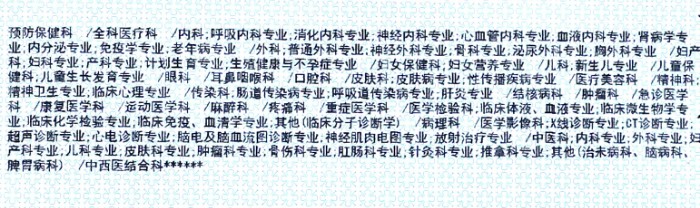 预防保健科 /全科医疗科 /内科;呼吸内科专业;消化内科专业;神经内科专业;心血管内科专业;血液内科专业;肾病学专
业;内分泌专业;免疫学专业;老年病专业 /外科;普通外科专业;神经外科专业;骨科专业;泌尿外科专业;胸外科专业 /妇产
科;妇科专业;产科专业;计划生育专业;生殖健康与不孕症专业 /妇女保健科;妇女营养专业 /儿科;新生儿专业 /儿童保
健科;儿童生长发育专业 /眼科 /耳鼻咽喉科 /口腔科 /皮肤科;皮肤病专业;性传播疾病专业 /医疗美容科 /精神科;
精神卫生专业;临床心理专业 /传染科;肠道传染病专业;呼吸道传染病专业;肝炎专业 /结核病科 /肿瘤科 /急诊医学
科 /康复医学科 /运动医学科 /麻醉科 /疼痛科 /重症医学科 /医学检验科;临床体液、血液专业;临床微生物学专
业;临床化学检验专业;临床免疫、血清学专业;其他(临床分子诊断学) /病理科 /医学影像科;X线诊断专业;CT诊断专业;
超声诊断专业;心电诊断专业;脑电及脑血流图诊断专业;神经肌肉电图专业;放射治疗专业 /中医科;内科专业;外科专业;妇
产科专业;儿科专业;皮肤科专业;肿瘤科专业;骨伤科专业;肛肠科专业;针灸科专业;推拿科专业;其他(治未病科、脑病科、
脾胃病科) /中西医结合科******